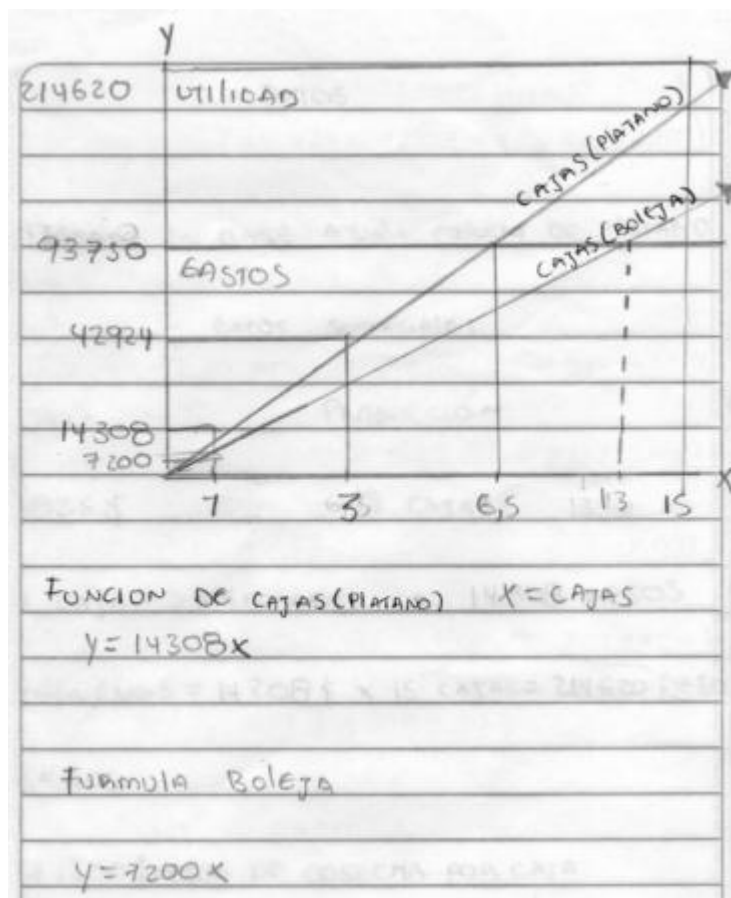 Y
214620 UTILIDAD
CAJAS (PLATANO)
CAJAS (BOLEJA)
93750
GASTOS
42924
14308
7200
X
1 3 6,5 13 15
FUNCION DE CAJAS (PLATANO) X = CAJAS
Y = 14308x
FURMULA BOLEJA
Y = 7200x